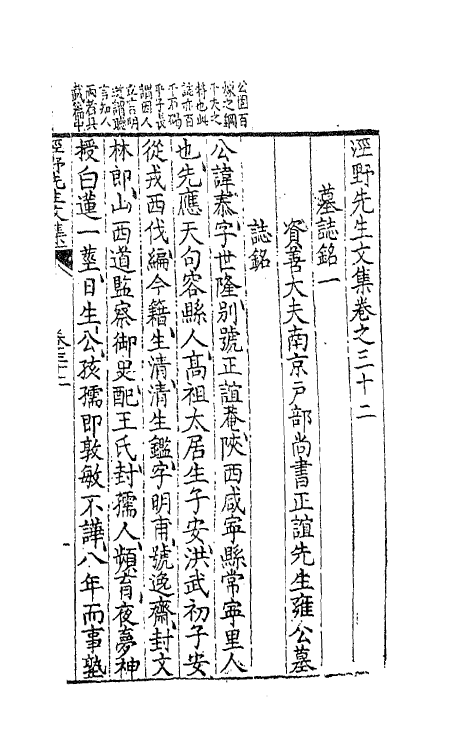 公固百
煉之鋼
下夫之
材也此
誌亦百
平子長
謂因人
立言明
道謂聽
言知人
兩者具
載篇中
涇野先生文集卷之三十二
墓誌銘一
資善大夫南京戶部尚書正誼先生雍公墓
誌銘
公諱泰字世隆別號正誼菴陝西咸寧縣常寧里人
也先應天句容縣人高祖太居生子安洪武初子安
從戎西伐編今籍生清清生鑑字明甫號逸齋封文
林郎山西道監察御史配王氏封孺人頻育夜夢神
授白蓮一莖日生公孩孺即敦敏不譁八年而事塾
涇野先生文集 卷三十二